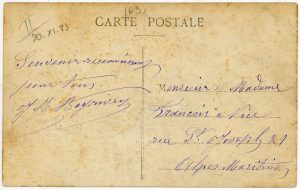 (65)
II
30.XI.83
CARTE POSTALE
Souvenir reconnaissant
pour vous
J. M.
Monsieur & Madame
François à Nice
rue St Joseph 21
Alpes Maritime